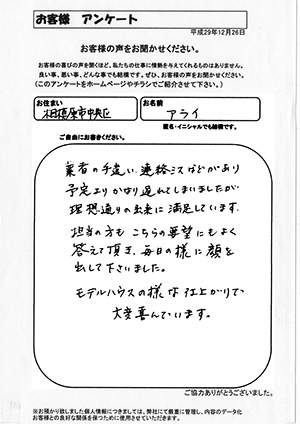 お客様 アンケート
平成29年12月26日
お客様の声をお聞かせください。
お客様の喜びの声を聞くほど、私たちの仕事に情熱を与えてくれるものはありません。
良い事、悪い事、どんな事でも結構です。ぜひ、お客様の声をお聞かせください。
(このアンケートをホームページやチラシでご紹介させて下さい。)
お住まい
相模原市中央区
お名前
アライ
匿名・イニシャルでも結構です。
ご自由にお書きください。
業者の手違い、連絡ミスなどがあり
予定よりかなり遅れてしまいましたが
理想通りの出来に満足しています。
担当の方もこちらの要望にもよく
答えて頂き、毎日の様に顔を
出して下さいました。
モデルハウスの様な仕上がりで
大変喜んでいます。
ご協力ありがとうございました。
※お預かり致しました個人情報につきましては、弊社にて厳重に管理し、内容のデータ化
お客様との良好な関係を保つために使用させていただきます。